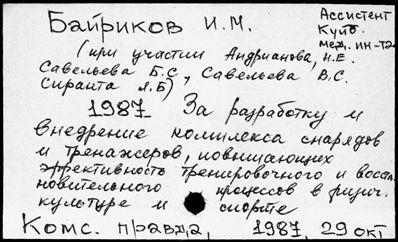 Байриков И.М.
Ассистент
Куйб.
мед. ин-та
(при участии Андрианова, Н.Е.
Савельева Б.С, Савельева В.С.
Сиранта Л.Б)
1987 За разработку и
внедрение комплекса снарядов
и тренажеров, повышающих
эффективность тренировочного и восста
новительного процессов в физич.
культуре и спорте
Комс. правда, 1987, 29 окт